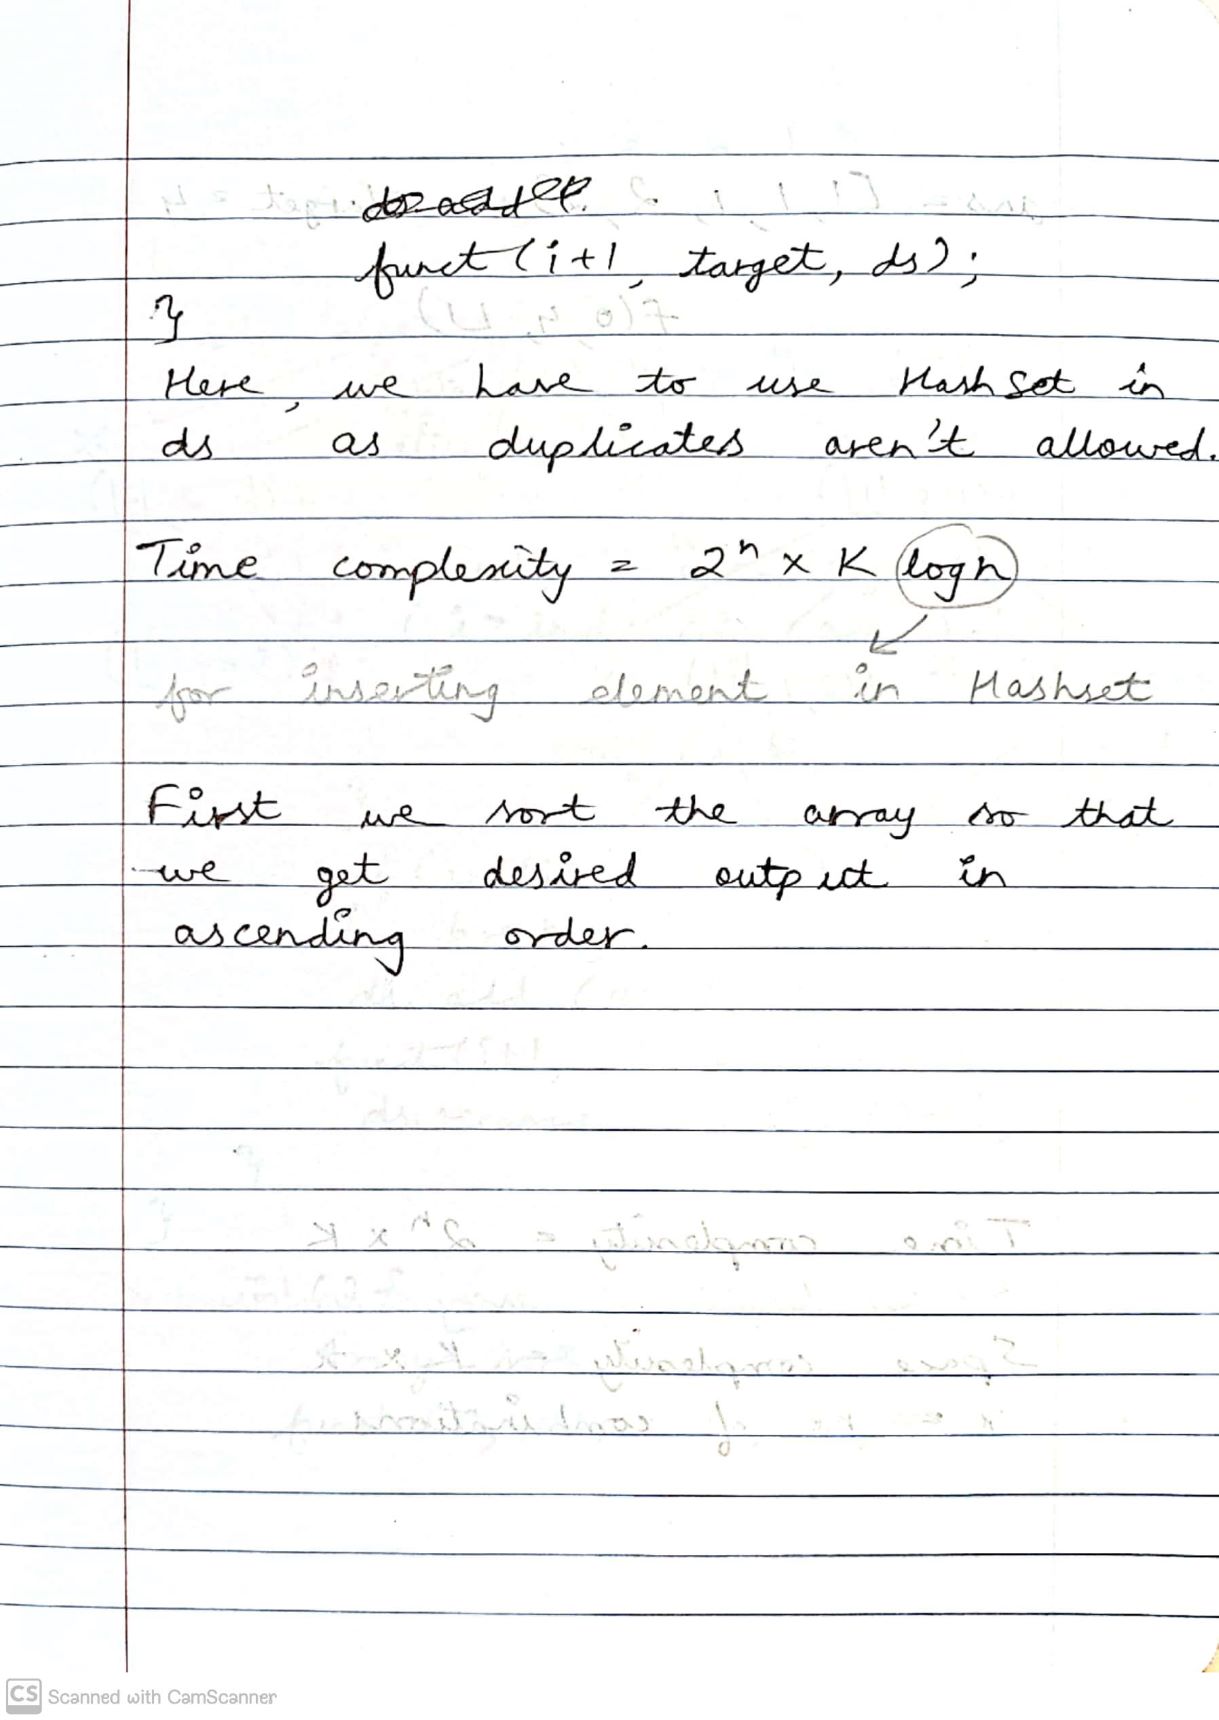 funct(i+1, target, ds);
}
Here, we have to use Hash Set in
ds as duplicates aren't allowed.
Time complexity = 2ⁿ x K logn
for inserting element in Hashset
First we sort the array so that
we get desired output in
ascending order.
CS Scanned with CamScanner